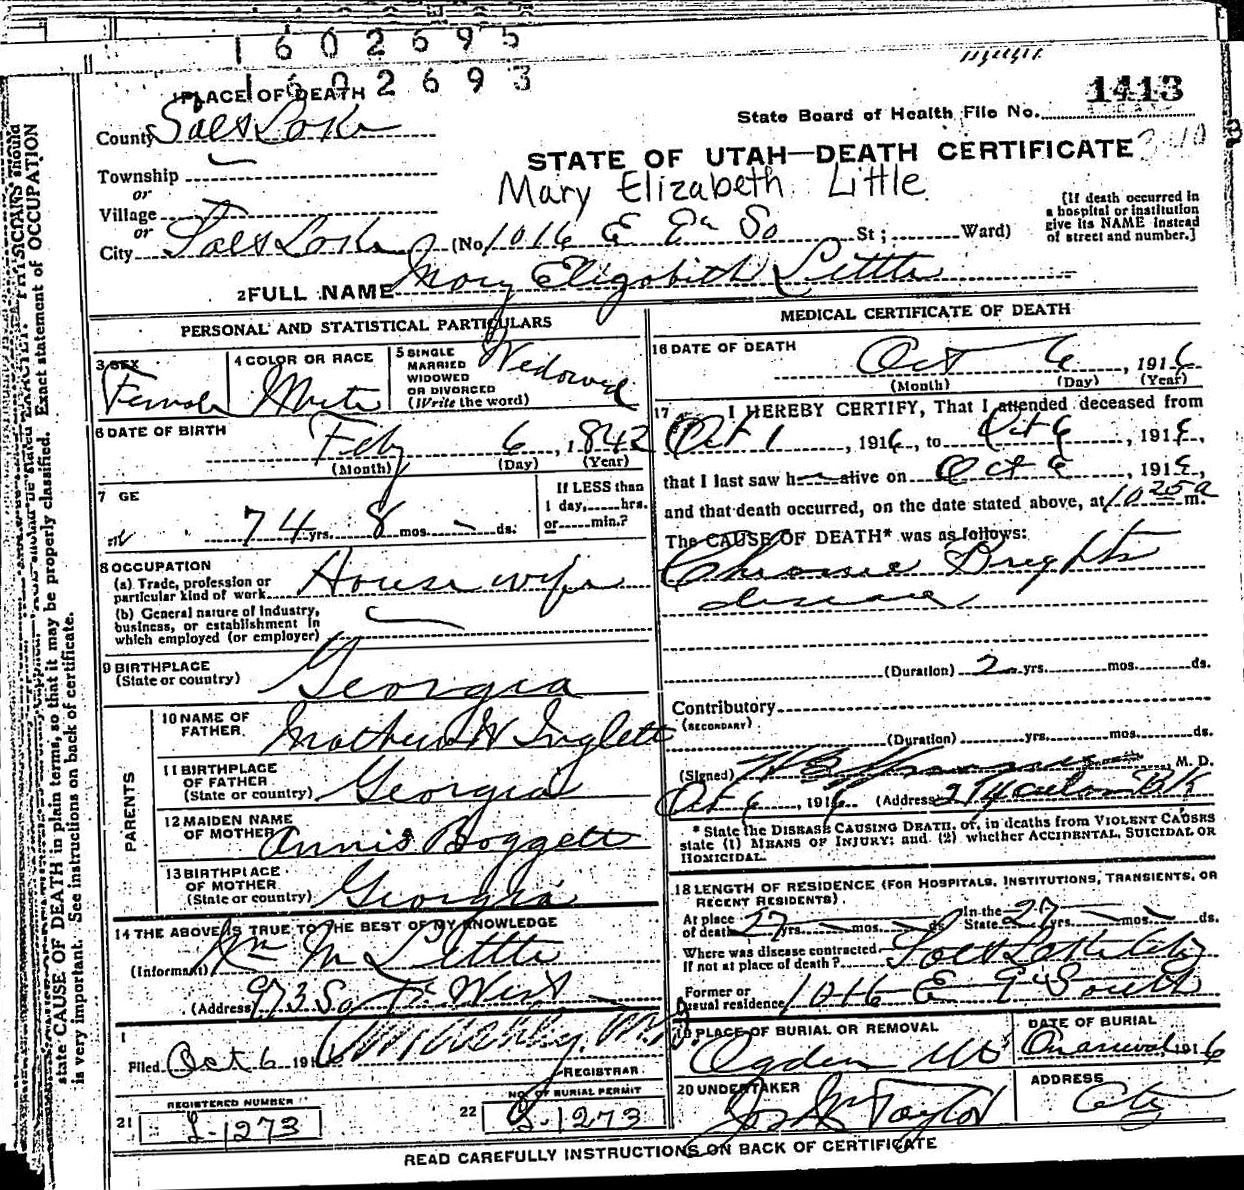 1602695
1602693
1413
State Board of Health File No.
PLACE OF DEATH
County Salt Lake
STATE OF UTAH—DEATH CERTIFICATE
Township
Mary Elizabeth Little
or
Village
or
City Salt Lake (No 1016 E E So St; Ward)
[If death occurred in
a hospital or institution
give its NAME instead
of street and number.]
2 FULL NAME Mary Elizabeth Little
PERSONAL AND STATISTICAL PARTICULARS
3 SEX
Female
4 COLOR OR RACE
White
5 SINGLE
MARRIED
WIDOWED
OR DIVORCED
(Write the word)
Widowed
6 DATE OF BIRTH
Feby 6, 1842
(Month) (Day) (Year)
7 GE
74 yrs. 8 mos. ds.
If LESS than
1 day, hrs.
or min.?
8 OCCUPATION
(a) Trade, profession or
particular kind of work House wife
(b) General nature of industry,
business, or establishment in
which employed (or employer)
9 BIRTHPLACE
(State or country) Georgia
PARENTS
10 NAME OF
FATHER Mathew W Inglett
11 BIRTHPLACE
OF FATHER
(State or country) Georgia
12 MAIDEN NAME
OF MOTHER Annis Boggett
13 BIRTHPLACE
OF MOTHER
(State or country) Georgia
14 THE ABOVE IS TRUE TO THE BEST OF MY KNOWLEDGE
(Informant) Little
(Address) 973 So West
Filed Oct 6 191
REGISTRAR
REGISTERED NUMBER
21 L-1273
NO. OF BURIAL PERMIT
22 L-1273
MEDICAL CERTIFICATE OF DEATH
16 DATE OF DEATH
Oct 6, 1916
(Month) (Day) (Year)
17 I HEREBY CERTIFY, That I attended deceased from
Oct 1, 1916, to Oct 6, 1916,
that I last saw h alive on Oct 6, 1916,
and that death occurred, on the date stated above, at 10 25 a m.
The CAUSE OF DEATH* was as follows:
Chronic Brights
disease
(Duration) 2 yrs. mos. ds.
Contributory
(SECONDARY)
(Duration) yrs. mos. ds.
(Signed) M. D.
Oct 6, 1916 (Address)
* State the DISEASE CAUSING DEATH, or, in deaths from VIOLENT CAUSES
state (1) MEANS OF INJURY; and (2) whether ACCIDENTAL, SUICIDAL OR
HOMICIDAL.
18 LENGTH OF RESIDENCE (FOR HOSPITALS, INSTITUTIONS, TRANSIENTS, OR
RECENT RESIDENTS).
At place
of death 27 yrs. mos. ds.
In the
State 27 yrs. mos. ds.
Where was disease contracted
If not at place of death? Salt Lake City
Former or
usual residence 1016 E South
19 PLACE OF BURIAL OR REMOVAL
Ogden
DATE OF BURIAL
1916
20 UNDERTAKER
Taylor
ADDRESS
City
READ CAREFULLY INSTRUCTIONS ON BACK OF CERTIFICATE
PHYSICIANS should
state CAUSE OF DEATH in plain terms, so that it may be properly classified. Exact statement of OCCUPATION
is very important. See instructions on back of certificate.